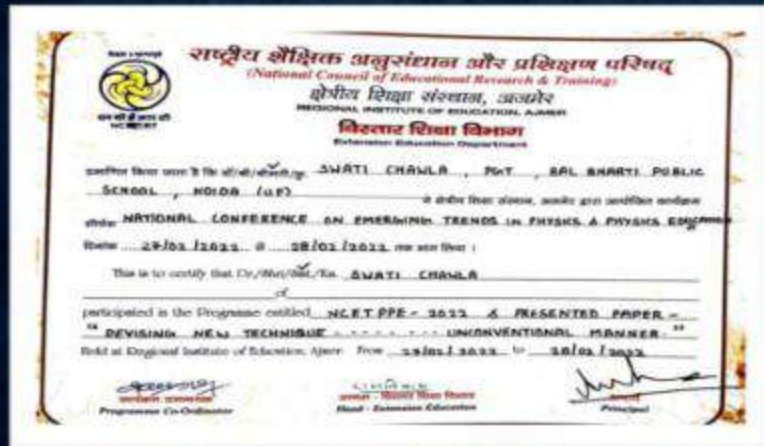 राष्ट्रीय शैक्षिक अनुसंधान और प्रशिक्षण परिषद्
(National Council of Educational Research & Training)
क्षेत्रीय शिक्षा संस्थान, अजमेर
REGIONAL INSTITUTE OF EDUCATION, AJMER
विस्तार शिक्षा विभाग
Extension Education Department
प्रमाणित किया जाता है कि SWATI CHAWLA, PGT, BAL BHARTI PUBLIC
SCHOOL, NOIDA (UP) ने क्षेत्रीय शिक्षा संस्थान, अजमेर द्वारा आयोजित कार्यक्रम
शीर्षक NATIONAL CONFERENCE ON EMERGING TRENDS IN PHYSICS & PHYSICS EDUCATION
दिनांक 27/02/2022 से 28/02/2022 तक भाग लिया।
This is to certify that Dr./Shri/Smt./Km. SWATI CHAWLA
of
participated in the Programme entitled NCETPPE-2022 & PRESENTED PAPER-
"DEVISING NEW TECHNIQUE ------- UNCONVENTIONAL MANNER"
Held at Regional Institute of Education, Ajmer From 27/02/2022 to 28/02/2022
Programme Co-Ordinator
Head - Extension Education
Principal